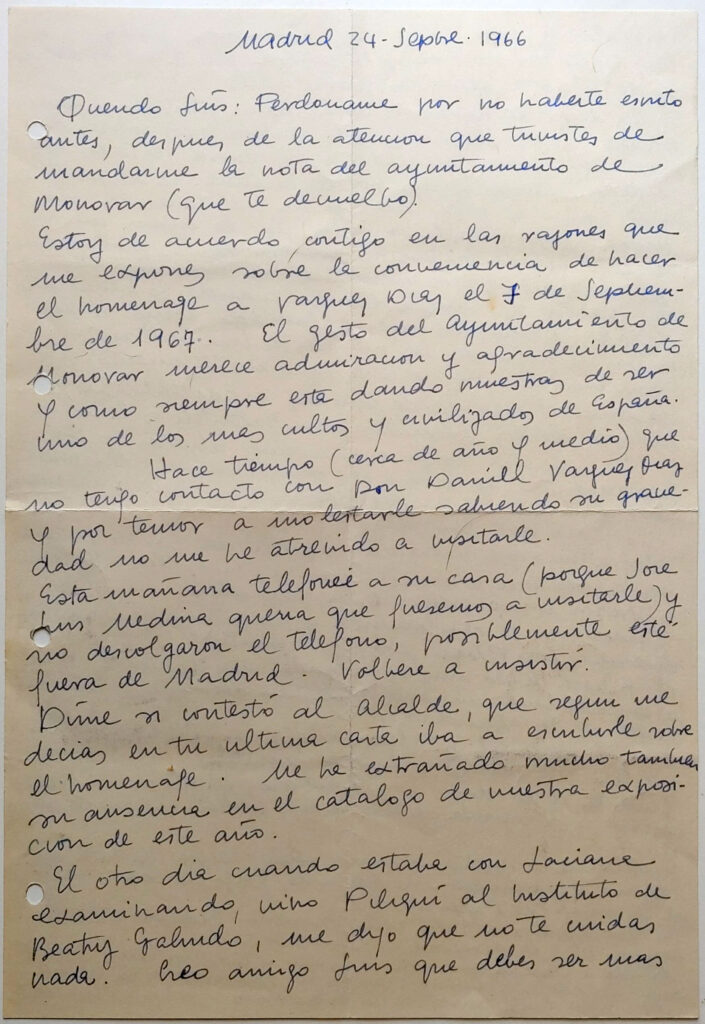 Madrid 24-Sepbre. 1966
Querido Luis: Perdoname por no haberte escrito
antes, despues de la atencion que tuvistes de
mandarme la nota del ayuntamiento de
Monovar (que te decuelbo).
Estoy de acuerdo contigo en las razones que
me expones sobre la conveniencia de hacer
el homenage a Vazquez Diaz el 7 de Septiem-
bre de 1967. El gesto del Ayuntamiento de
Monovar merece admiracion y agradecimiento
y como siempre esta dando muestras de ser
uno de los mas cultos y civilizados de España.
Hace tiempo (cerca de año y medio) que
no tengo contacto con Don Daniel Vazquez Diaz
y por temor a molestarle sabiendo su grave-
dad no me he atrevido a visitarle.
Esta mañana telefoneé a su casa (porque Jose
Luis Medina queria que fuesemos a visitarle) y
no descolgaron el telefono, posiblemente esté
fuera de Madrid. Volbere a insistir.
Dime si contestó al Alcalde, que segun me
decias en tu ultima carta iba a escribirle sobre
el homenage. Me ha extrañado mucho tambien
su ausencia en el catalogo de nuestra exposi-
cion de este año.
El otro dia cuando estaba con Laciana
examinando, vino al Instituto de
Beatriz Galindo, me dijo que no te cuidas
nada. Creo amigo Luis que debes ser mas